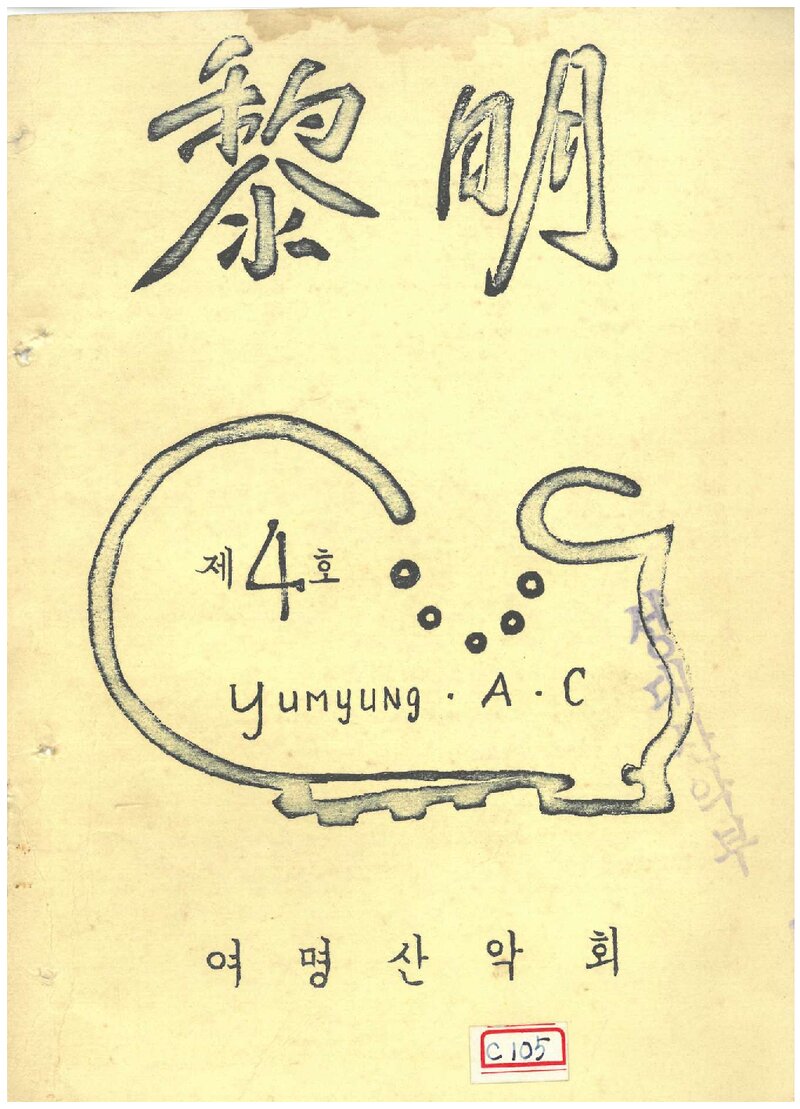 黎明
제4호
YUMYUNG · A · C
여명산악회
C 105